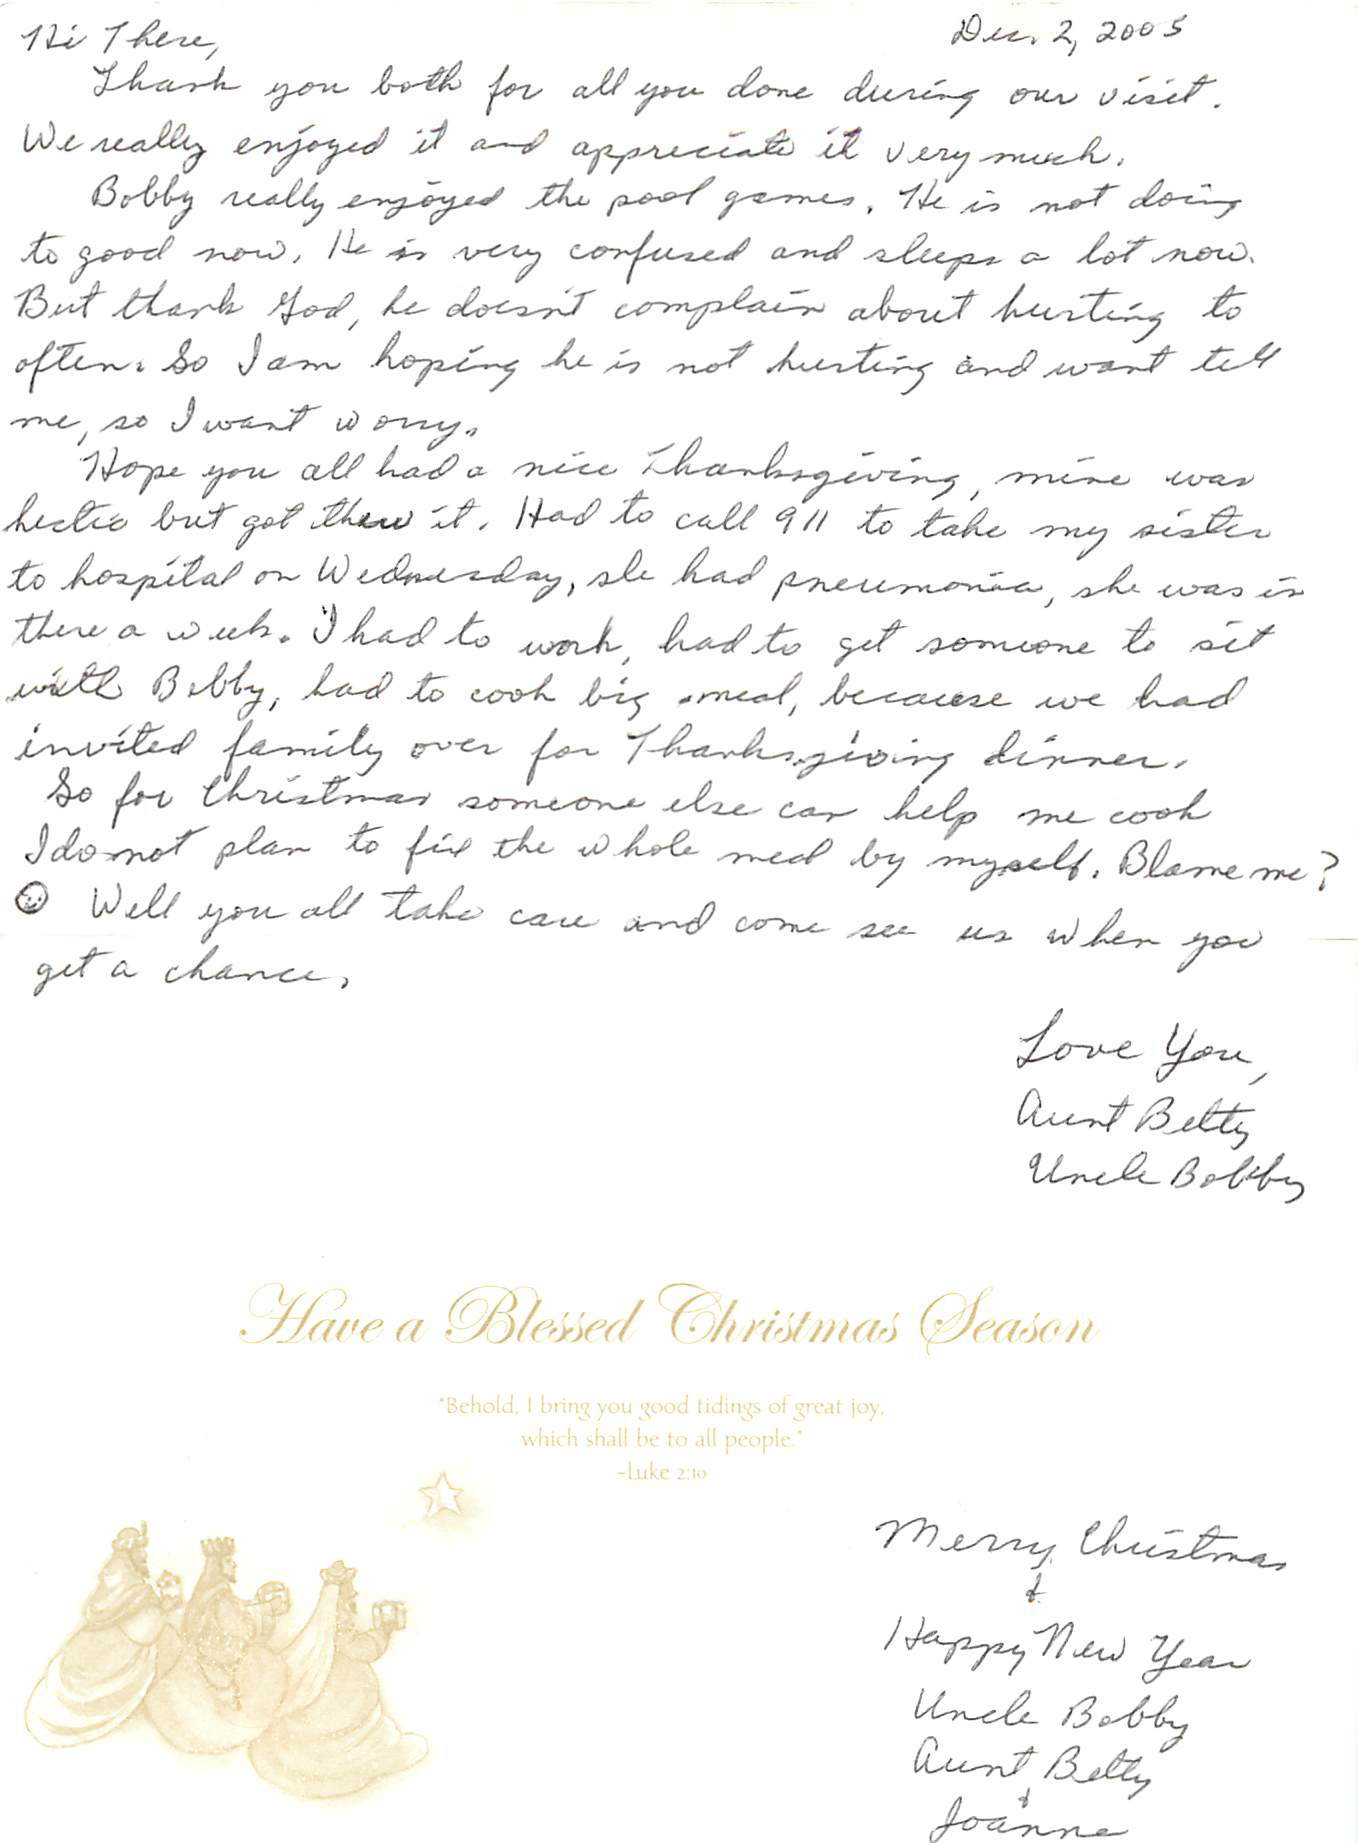 Dec. 2, 2005
Hi There,
Thank you both for all you done during our visit.
We really enjoyed it and appreciate it very much.
Bobby really enjoyed the pool games. He is not doing
to good now. He is very confused and sleeps a lot now.
But thank God, he doesn't complain about hurting to
often. So I am hoping he is not hurting and want tell
me, so I want worry.
Hope you all had a nice Thanksgiving, mine was
hectic but got threw it. Had to call 911 to take my sister
to hospital on Wednesday, she had pneumonia, she was in
there a week. I had to work, had to get someone to sit
with Bobby, had to cook big meal, because we had
invited family over for Thanksgiving dinner.
So for Christmas someone else can help me cook
I do not plan to fix the whole meal by myself. Blame me?
☺ Well you all take care and come see us when you
get a chance.
Love You,
Aunt Betty
Uncle Bobby
Have a Blessed Christmas Season
"Behold, I bring you good tidings of great joy,
which shall be to all people."
-Luke 2:10
Merry Christmas
&
Happy New Year
Uncle Bobby
Aunt Betty
&
Joanne